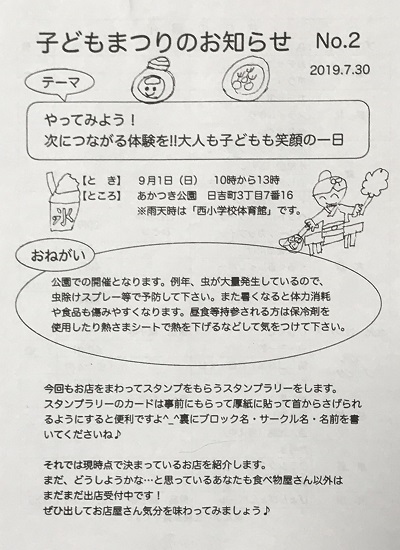 子どもまつりのお知らせ No.2
2019.7.30
テーマ
やってみよう！
次につながる体験を!!大人も子どもも笑顔の一日
【と　き】 9月1日（日） 10時から13時
【ところ】 あかつき公園 日吉町3丁目7番16
※雨天時は「西小学校体育館」です。
氷
おねがい
公園での開催となります。例年、虫が大量発生しているので、
虫除けスプレー等で予防して下さい。また暑くなると体力消耗
や食品も傷みやすくなります。昼食等持参される方は保冷剤を
使用したり熱さまシートで熱を下げるなどして気をつけて下さい。
今回もお店をまわってスタンプをもらうスタンプラリーをします。
スタンプラリーのカードは事前にもらって厚紙に貼って首からさげられ
るようにすると便利ですよ^_^裏にブロック名・サークル名・名前を書
いてくださいね♪
それでは現時点で決まっているお店を紹介します。
まだ、どうしようかな…と思っているあなたも食べ物屋さん以外は
まだまだ出店受付中です！
ぜひ出してお店屋さん気分を味わってみましょう♪